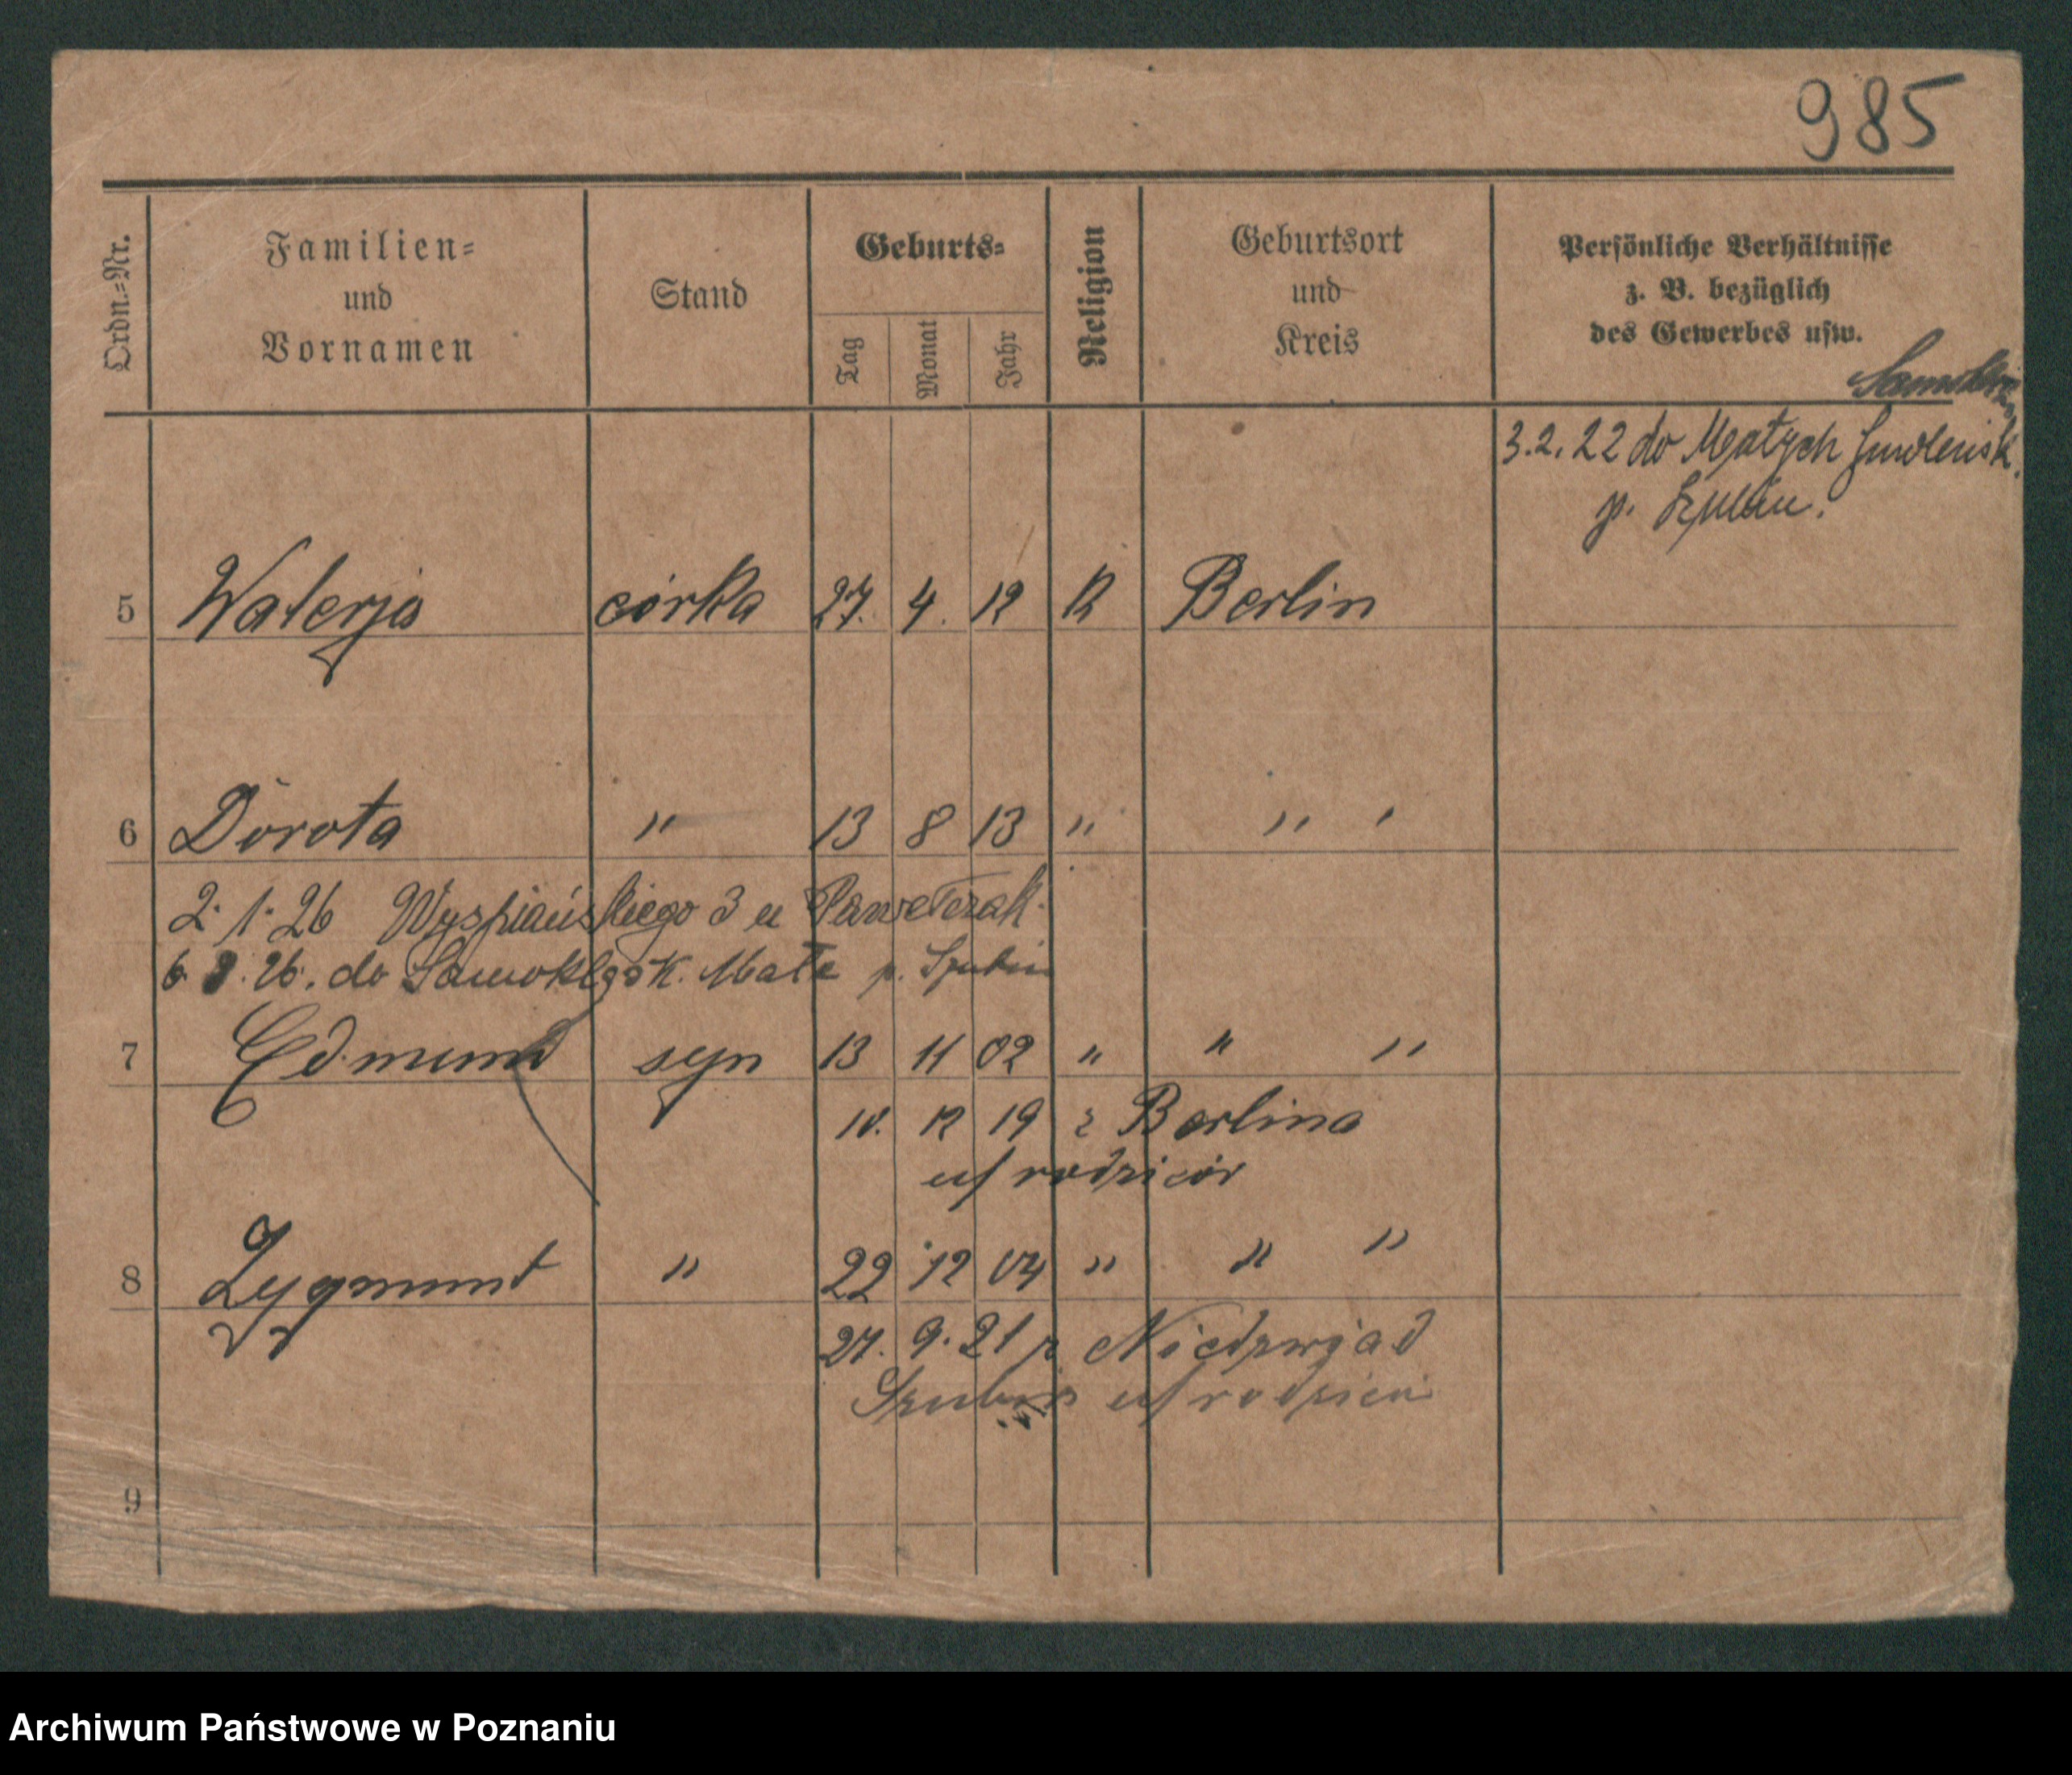 985
Ordn.=Nr.
Familien=
und
Vornamen
Stand
Geburts=
Tag
Monat
Jahr
Religion
Geburtsort
und
Kreis
Persönliche Verhältnisse
z. B. bezüglich
des Gewerbes usw.
3.2.22 do Małych
p.
5 Walerja córka 27. 4. 12 R Berlin
6 Dorota " 13 8 13 " " "
2. 1. 26 Wyspiańskiego 3 u Pawełczak
6. 26. do Samoklęsk. Małe p. Szubin
7 Edmund syn 13 11 02 " " "
10. 12 19 z Berlina
u/ rodziców
8 Zygmunt " 22 12 04 " " "
27. 9. 21 z Niedzwiad
Szubin u/ rodzicow
9
Archiwum Państwowe w Poznaniu